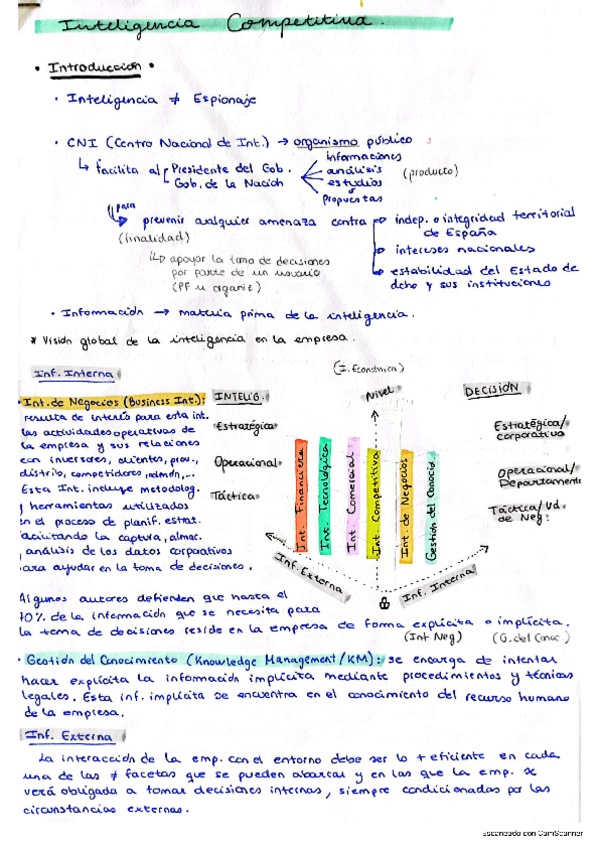 Inteligencia Competitiva.
• Introducción •
• Inteligencia ≠ Espionaje
• CNI (Centro Nacional de Int.) → organismo público
↳ facilita al Presidente del Gob.
Gob. de la Nación
informaciones
análisis
estudios
propuestas
(producto)
para
prevenir cualquier amenaza contra
(finalidad)
indep. o integridad territorial
de España
intereses nacionales
estabilidad del Estado de
dcho y sus instituciones
↳ apoyar la toma de decisiones
por parte de un usuario
(PF u organiz)
• Información → materia prima de la inteligencia.
* Visión global de la inteligencia en la empresa.
Inf. Interna
• Int. de Negocios (Business Int.):
resulta de interés para esta int.
las actividades operativas de
la empresa y sus relaciones
con inversores, clientes, prov.,
distrib, competidores, ...
Esta Int. incluye metodolog.
y herramientas utilizados
en el proceso de planif. estrat.
facilitando la captura, almac.
y análisis de los datos corporativos
para ayudar en la toma de decisiones.
(I. Económica)
INTELIG.
Nivel
DECISIÓN
Estratégica
Operacional
Táctica
Int. Financiera
Int. Tecnológica
Int. Comercial
Int. Competitiva
Int. de Negocios
Gestión del Conocid.
Estratégica/
corporativa
Operacional/
Departament
Táctica/Ud.
de Neg.
Inf. Externa
Inf. Interna
Algunos autores defienden que hasta el
70% de la información que se necesita para
la toma de decisiones reside en la empresa de forma explícita o implícita.
(Int Neg) (G. del Conoc)
• Gestión del Conocimiento (Knowledge Management/KM): se encarga de intentar
hacer explícita la información implícita mediante procedimientos y técnicas
legales. Esta inf. implícita se encuentra en el conocimiento del recurso humano
de la empresa.
Inf. Externa
La interacción de la emp. con el entorno debe ser lo + eficiente en cada
una de las ≠ facetas que se pueden abarcar y en las que la emp. se
verá obligada a tomar decisiones internas, siempre condicionadas por las
circunstancias externas.
Escaneado con CamScanner